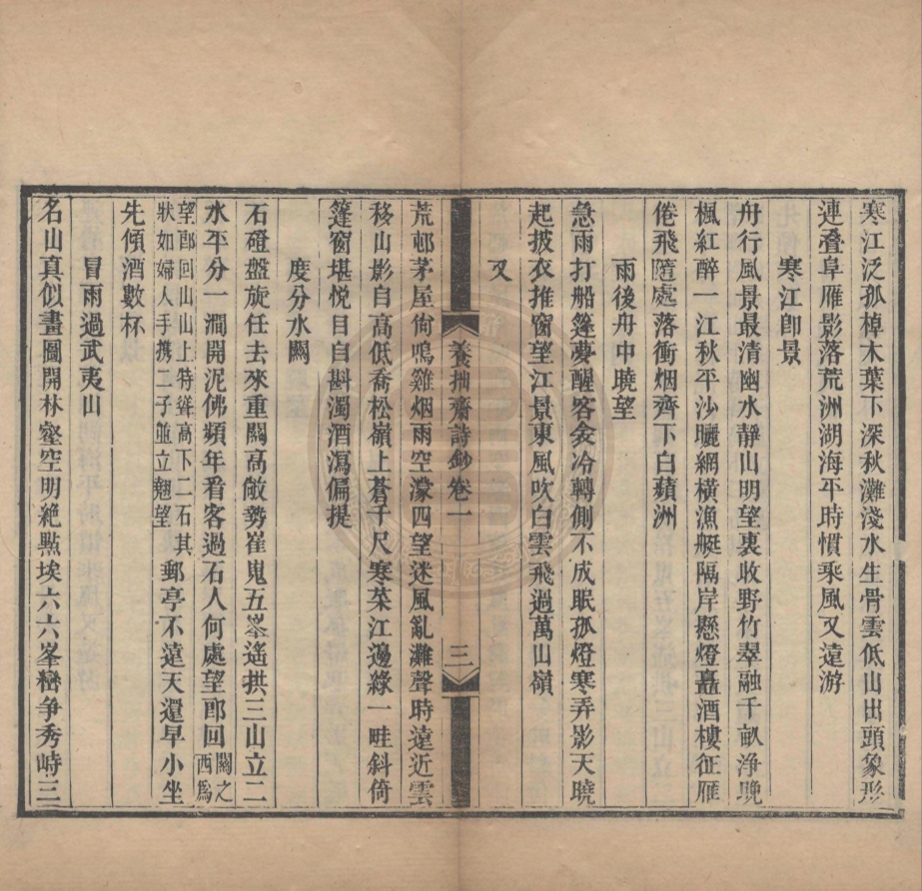 寒江泛孤棹木葉下深秋灘淺水生骨雲低山出頭象形
連疊阜雁影落荒洲湖海平時慣乘風又遠游
寒江卽景
舟行風景最清幽水靜山明望裏收野竹翠融千畝淨晚
楓紅醉一江秋平沙曬網橫漁艇隔岸懸燈矗酒樓征雁
倦飛隨處落衝烟齊下白蘋洲
雨後舟中曉望
急雨打船篷夢醒客衾冷轉側不成眠孤燈寒弄影天曉
起披衣推窗望江景東風吹白雲飛過萬山嶺
又
荒邨茅屋尙鳴雞烟雨空濛四望迷風亂灘聲時遠近雲
移山影自高低喬松嶺上蒼千尺寒菜江邊綠一畦斜倚
篷窗堪悅目自斟濁酒瀉偏提
度分水關
石磴盤旋任去來重關高敞勢崔嵬五峯遙拱三山立二
水平分一澗開泥佛頻年看客過石人何處望郎回關之西爲
望郎回山山上特聳高下二石其狀如婦人手攜二子並立翹望郵亭不遠天還早小坐
先傾酒數杯
冒雨過武夷山
名山真似畫圖開林壑空明絶㸃埃六六峯巒争秀峙三
養拙齋詩鈔卷一
三